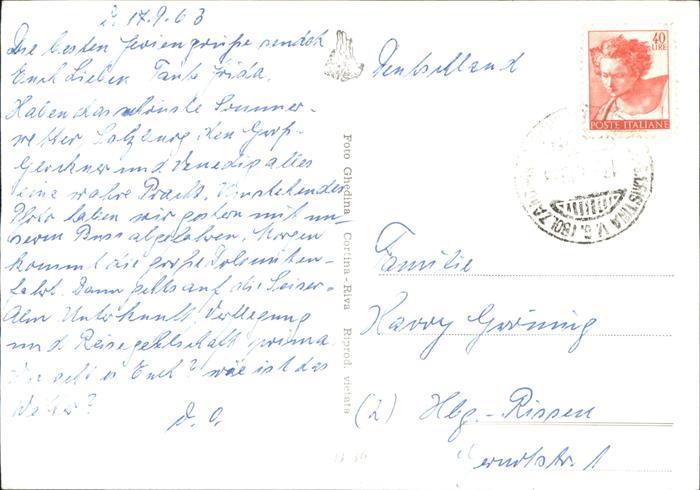 17.9.63
Die besten Feriengrüße sendet
Euch Lieben Tante Frida.
Haben das schönste Sommer-
wetter, Salzburg den Groß-
Glockner und Venedig alles
eine wahre Pracht. Umstehendes
Photo haben wir gestern mit un-
serem Bus abgefahren. Morgen
kommt die große Dolomiten-
fahrt. Dann gehts auf die Seiser-
Alm Unterkunft Verpflegung
und Reisegesellschaft prima.
Wie geht es Euch? wie ist das
Wetter?
Foto Ghedina - Cortina - Riva Riprod. vietata
Deutschland
40
LIRE
POSTE ITALIANE
CRISTINA V. G. (BOLZANO)
Familie
Harry
(2) Hbg.-Rissen
1